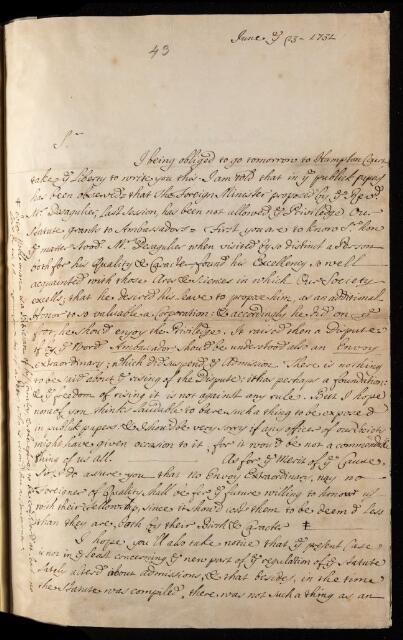 June ye 23 - 1732
43
Sr
I being obliged to go tomorrow to Hampton Court
take ye Liberty to write you this. I am told that in ye publick papers
has been observed that the Foreign Minister proposed by ye Revd
Mr Desaguliers last Session, has been not allowed ye Privilege Our
Statute grants to Ambassadors. First you are to know Sr how
ye matter stood. Mr Desaguliers when visited by so distinct a Person
both for his Quality & Caracter found his Excellency so well
acquainted with those Arts & Sciences in which Our Society
excells; that he desired his leave to propose him, as an additional
Honor to so valuable a Corporation: & accordingly he did on ye
foot, he should enjoy the Privilege. It raised then a Dispute
if by ye Word Ambassador should be understood also an Envoy
extraordinary; which did suspend ye Admission. There is nothing
to be said about ye rising of the Dispute; it has perhaps a foundation:
& ye freedom of rising it is not against any rule. But I hope
none of you thinks suitable to have such a thing to be exposed
in publick papers & I should be very sorry if any officer of our Society
might have given occasion to it, for it would be not a commendable
thing of us all. As for ye Merit of ye Cause,
I do assure you that no Envoy Extraordinary, nay no
Foreigner of Quality shall be for ye future willing to honour us
with their fellowship, since it should cost them to be deem'd less
than they are, both by their Birth & Caracter ‡
I hope you'll also take notice that ye present Case
is not in ye least concerning ye new part of ye regulation of ye Statute
lately alter'd about admissions, & that besides, in the time
the Statute was compiled there was not such a thing as an